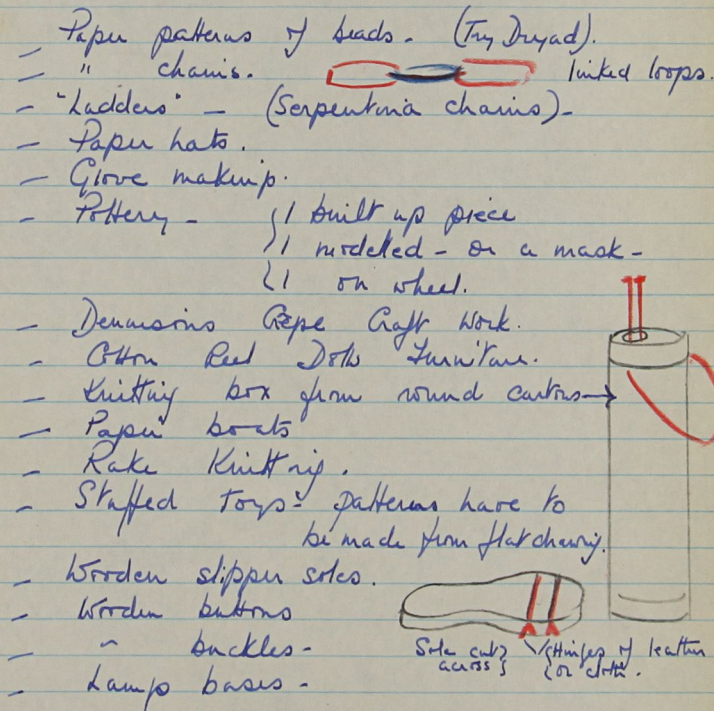 Paper patterns of beads. (Try Dryad).
— " chains. linked loops.
— "Ladders" — (Serpentina chains) —
— Paper hats.
— Glove makeup.
— Pottery — { 1 built up piece
1 modelled - or a mask -
1 on wheel.
— Dennisons Crepe Craft Work.
— Cotton Reel Dolls Furniture.
— Knitting box from round cartons →
— Paper boats
— Rake Knitting.
— Stuffed Toys - patterns have to
be made from flat
— Wooden slipper soles.
— Wooden buttons
— " buckles -
— Lamp bases -
Sole cut across
Hinges of leather or cloth.